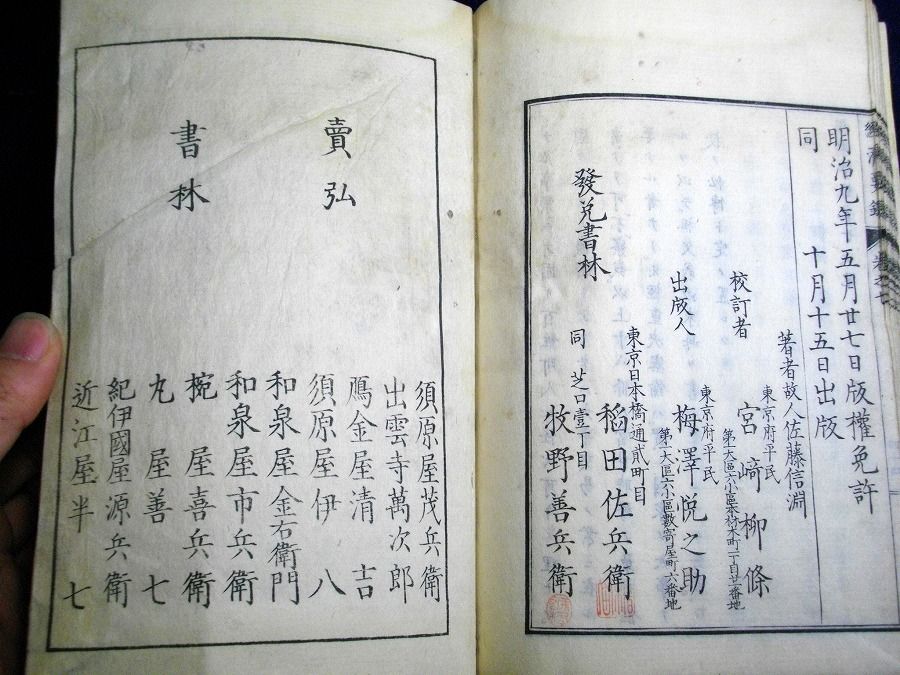 明治九年五月廿七日版權免許
同　十月十五日出版
著者故人佐藤信淵
東京府平民
校訂者　宮﨑柳條
第一大區六小區本材木町一丁目廿一番地
東京府平民
出版人　梅澤悦之助
第一大區六小區數寄屋町六番地
東京日本橋通貳町目
發兌書林　稻田佐兵衛
同　芝口壹丁目
牧野善兵衛
賣弘
書林
須原屋茂兵衛
出雲寺萬次郎
鴈金屋清吉
須原屋伊八
和泉屋金右衛門
和泉屋市兵衛
椀屋喜兵衛
丸屋善七
紀伊國屋源兵衛
近江屋半七